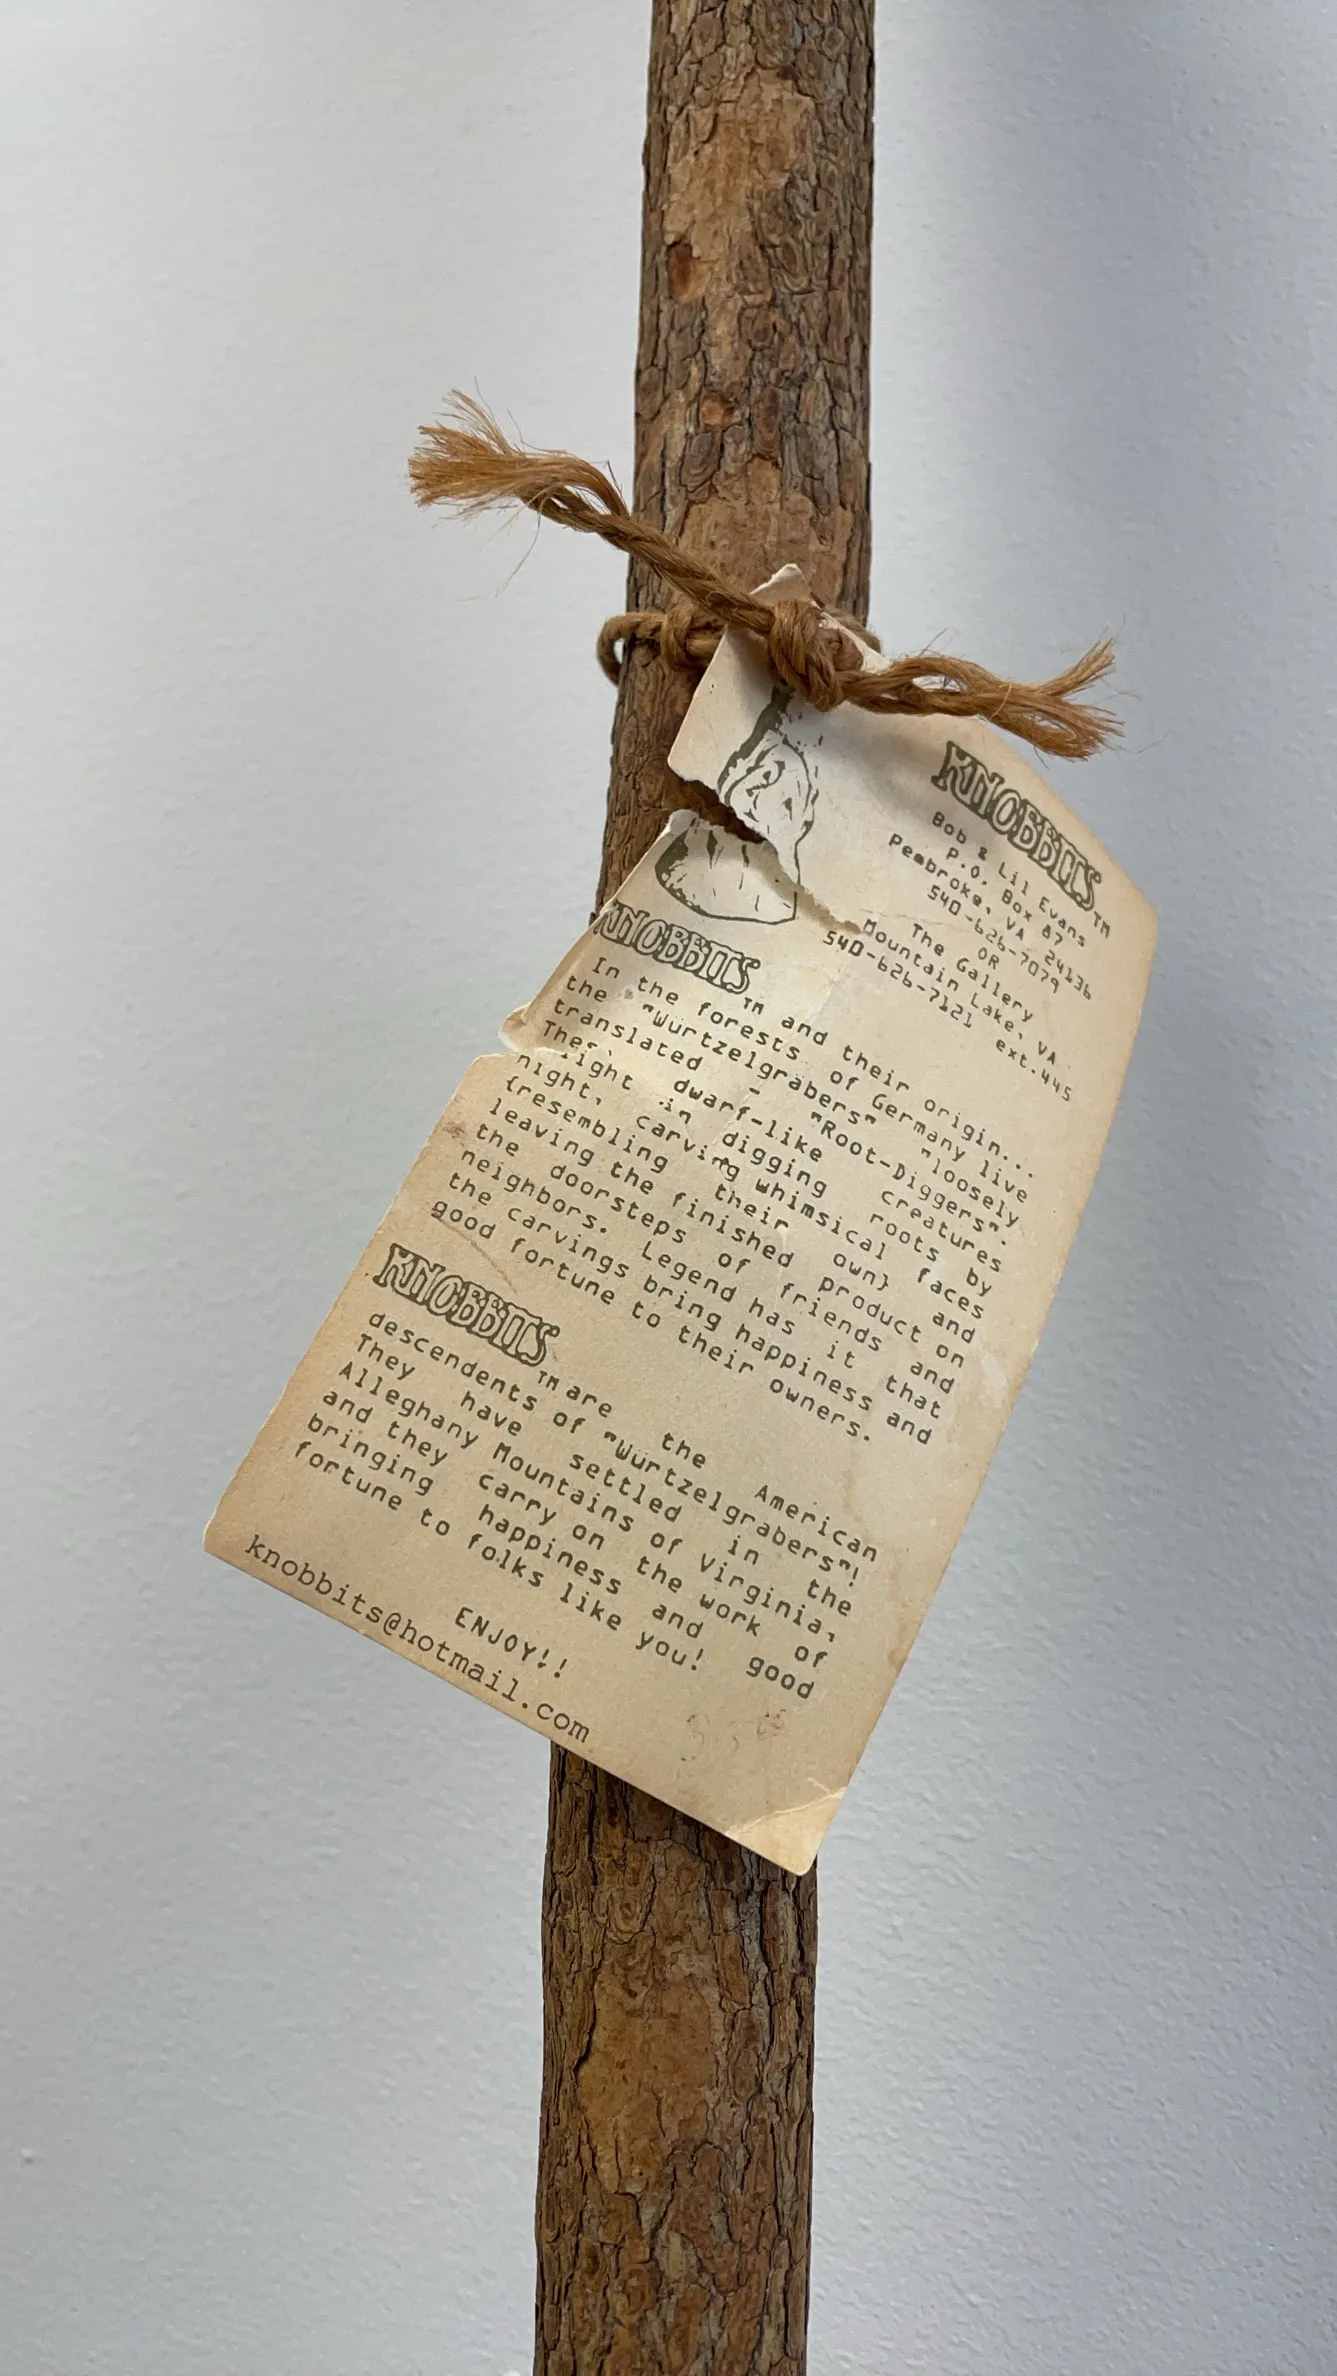 KNOBBITS™
Bob & Lil Evans
P.O. Box 87
Pembroke, VA 24136
540-626-7079
OR
The Gallery
Mountain Lake, VA
540-626-7121 ext.445
KNOBBITS™ and their origin...
In the forests of Germany live
the "Würtzelgrabers" "loosely
translated - "Root-Diggers".
Thes dwarf-like creatures
light in digging roots by
night, carving whimsical faces
{resembling their own} and
leaving the finished product on
the doorsteps of friends and
neighbors. Legend has it that
the carvings bring happiness and
good fortune to their owners.
KNOBBITS™ are the American
descendents of "Würtzelgrabers"!
They have settled in the
Alleghany Mountains of Virginia,
and they carry on the work of
bringing happiness and good
fortune to folks like you!
ENJOY!!
knobbits@hotmail.com